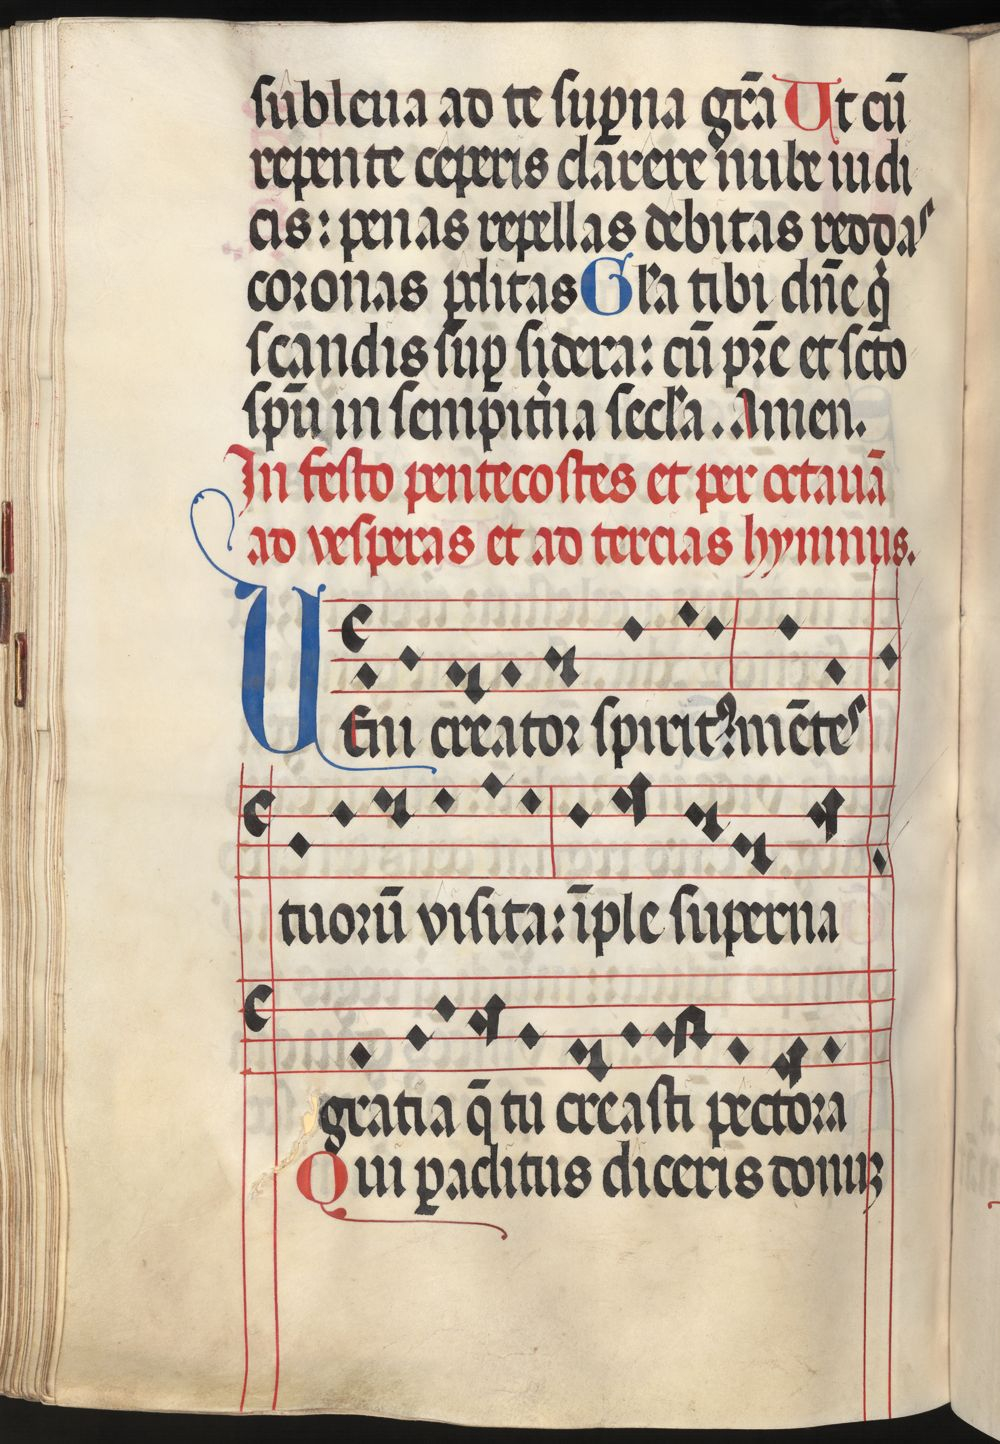 subleua ad te sup̱na gr̄a Ut cū
repente ceperis clarere nube iudi
cis: penas repellas debitas reddas
coronas p̱ditas Gl̄a tibi dn̄e q̇
scandis sup̱ sidera: cū pr̄e et sc̄to
sp̄u in semp̱it̄na secl̄a. Amen.
In festo pentecostes et per octauā
ad vesperas et ad tercias hymnus.
UEni creator spiritꝰ: mētes
tuorū visita: īple superna
gratia q̄ tu creasti pectora
Qui p̱aclitus diceris donuꝫ